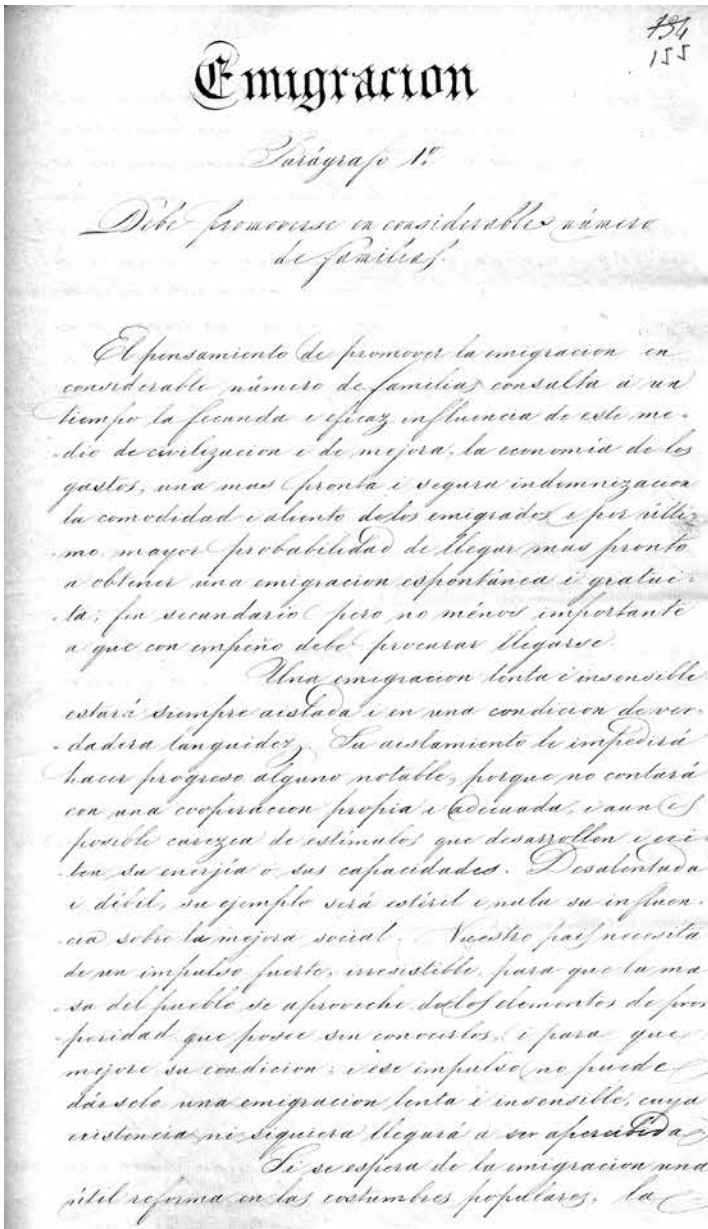 134
155
Emigracion
Parágrafo 1.º
Debe promoverse en considerable número
de familias.
El pensamiento de promover la emigracion en
considerable número de familias consulta a un
tiempo la fecunda i eficaz influencia de este me-
-dio de civilizacion i de mejora, la economía de los
gastos, una mas pronta i segura indemnizacion
la comodidad i aliento de los emigrados i por últi-
-mo mayor probabilidad de llegar mas pronto
a obtener una emigracion espontánea i gratui-
-ta; fin secundario pero no ménos importante
a que con empeño debe procurar llegarse.
Una emigracion lenta i insensible
estará siempre aislada i en una condicion de ver-
-dadera languidez. Su aislamiento le impedirá
hacer progreso alguno notable, porque no contará
con una cooperacion propia i adecuada, i aun es
posible carezca de estímulos que desarrollen i eci-
-ten su enerjía o sus capacidades. Desalentada
i débil, su ejemplo será estéril i nula su influen-
-cia sobre la mejora social. Nuestro pais necesita
de un impulso fuerte, irresistible, para que la ma-
-sa del pueblo se aproveche de los elementos de pros
-peridad que posee sin conocerlos, i para que
mejore su condicion; i ese impulso no puede
dárselo una emigracion lenta i insensible, cuya
existencia ni siquiera llegará a ser apercibida.
Si se espera de la emigracion una
útil reforma en las costumbres populares, la